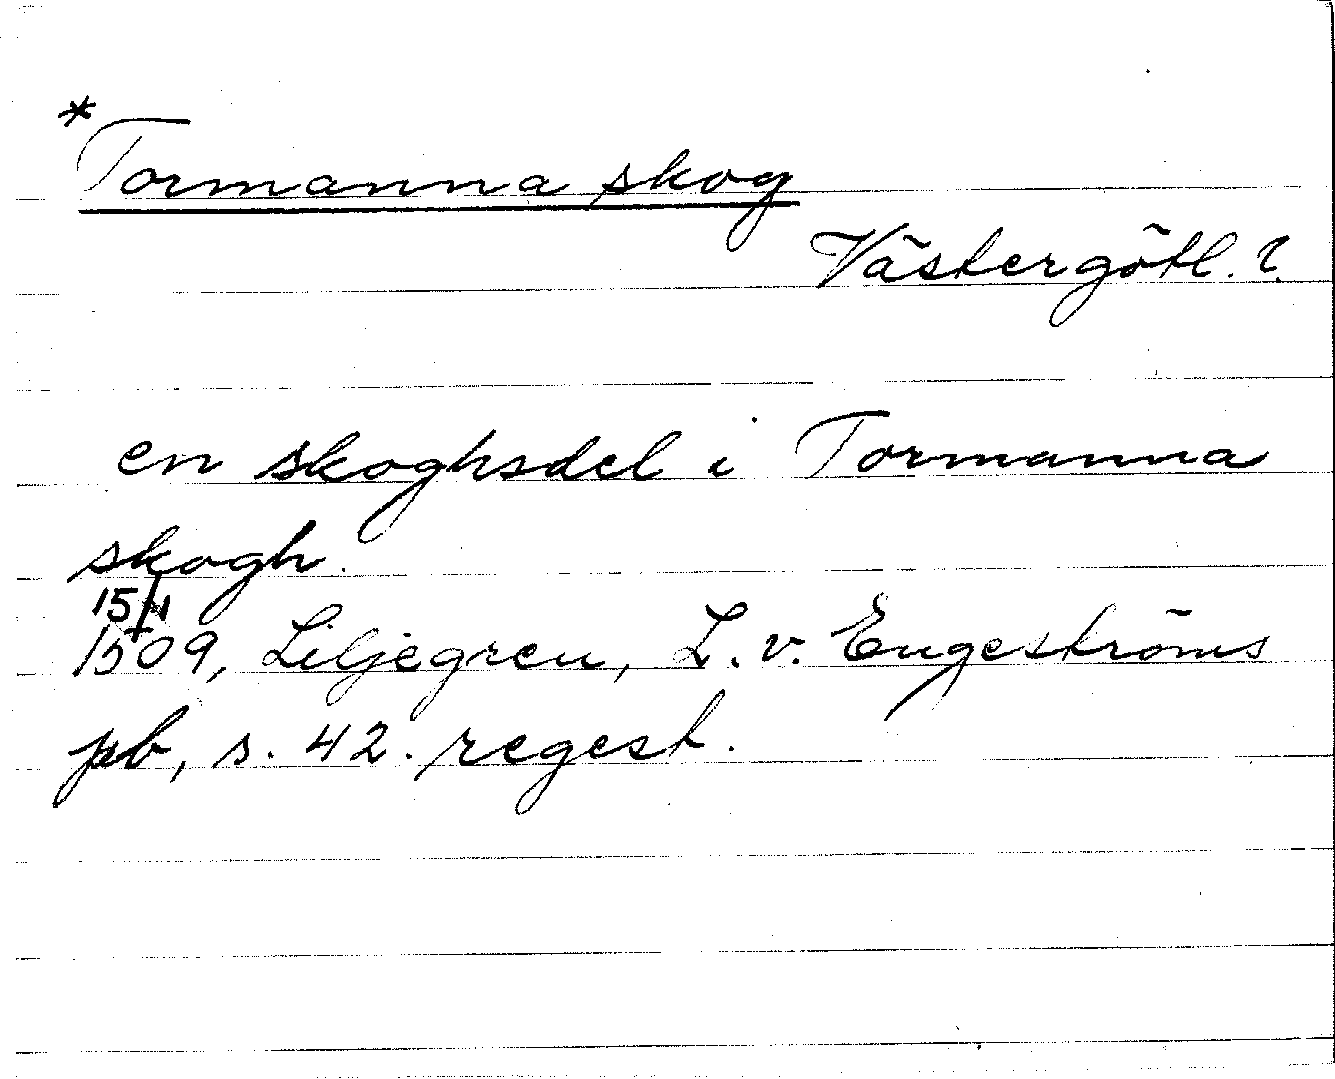 *Tormanna skog
Västergötl. ?
en skoghsdel i Tormanna
skogh.
15/1
1509, Liljegren, L. v. Engeströms
pb, s. 42. regest.